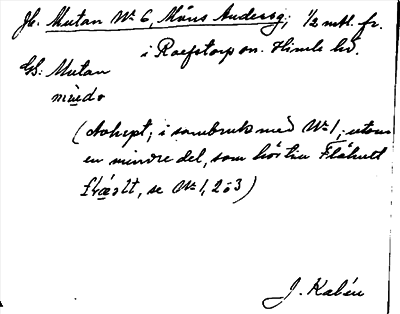 Jb. Mutan No 6, Måns Andersg; 1/2 mtl. fr.
i Raefstorp sn. Himle hd.
Gb: Mutan
mùəda
(Avhept; i sambruk med No 1, utom
en mindre del, som hör till Flåhult
, se No 1, 2 o 3)
J. Kalén